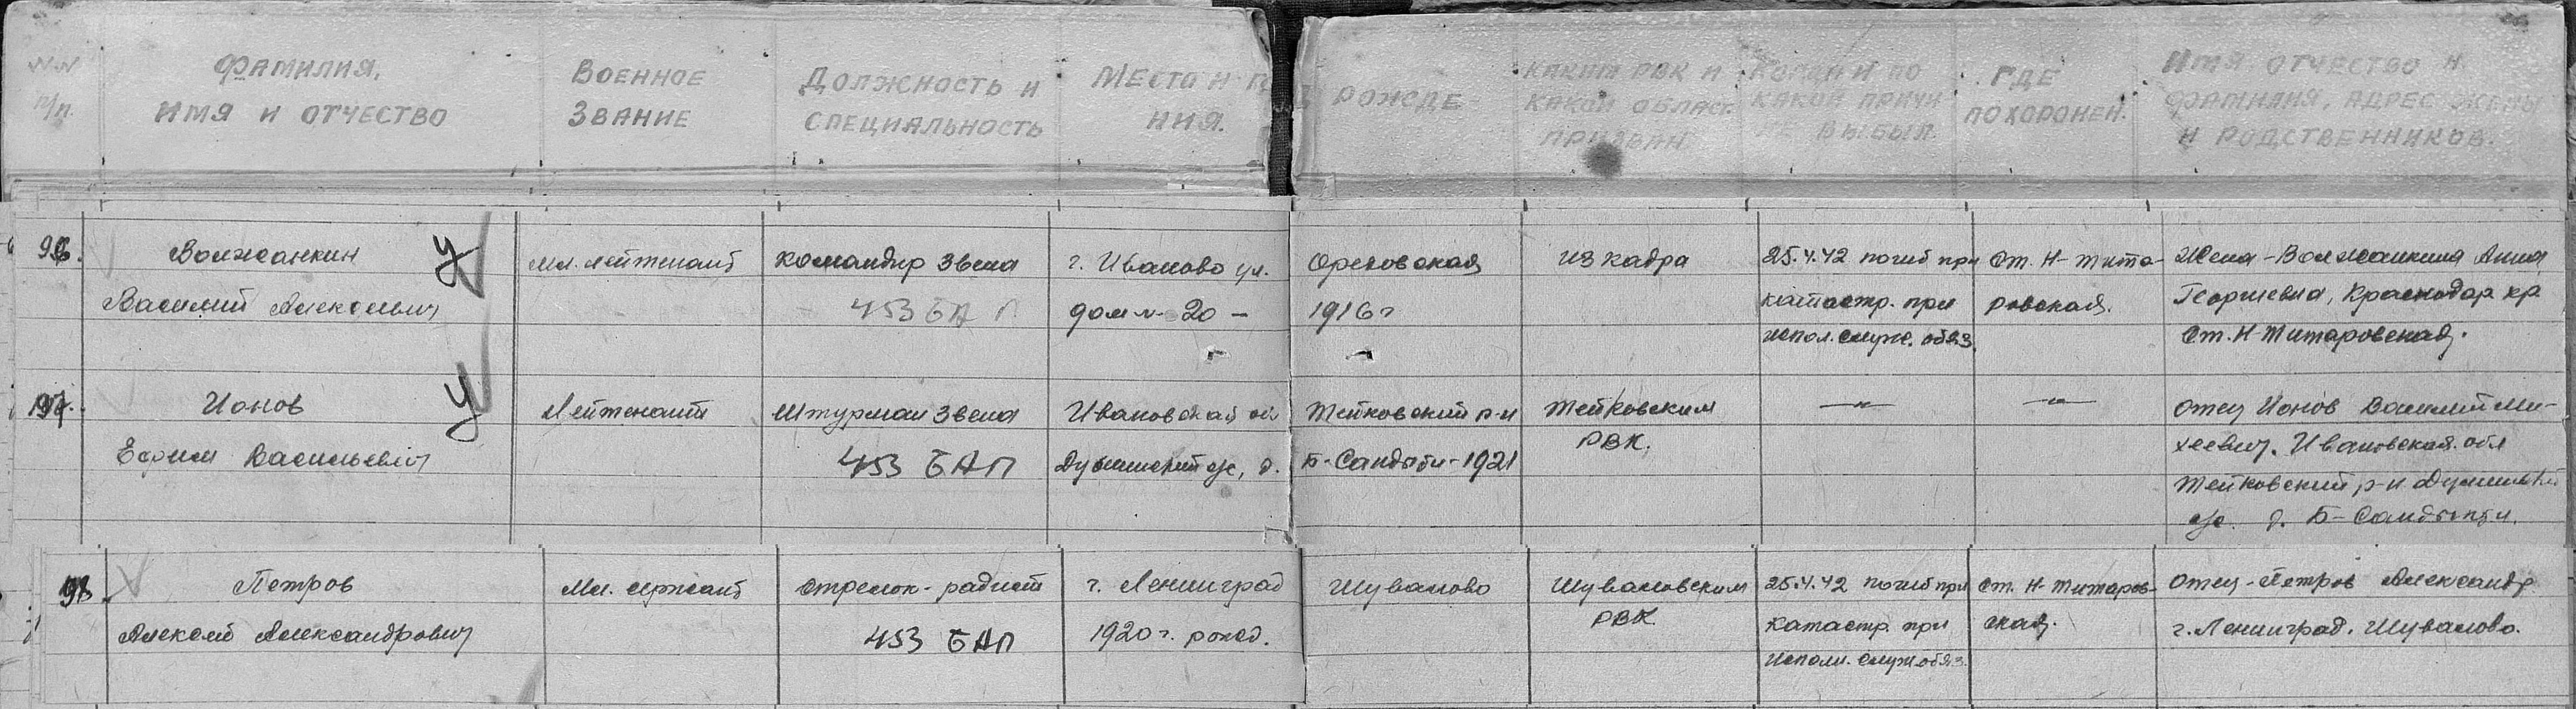 NN п/п.
ФАМИЛИЯ, ИМЯ И ОТЧЕСТВО
ВОЕННОЕ ЗВАНИЕ
ДОЛЖНОСТЬ И СПЕЦИАЛЬНОСТЬ
МЕСТО И РОЖДЕ-
НИЯ.
КАКИМ РВК И КАКОЙ ОБЛАСТ. ПРИЗВАН
КОГДА И ПО КАКОЙ ПРИЧИ НЕ ВЫБЫЛ.
ГДЕ ПОХОРОНЕН.
ИМЯ ОТЧЕСТВО И ФАМИЛИЯ, АДРЕС ЖЕНЫ И РОДСТВЕННИКОВ.
96. Волжанкин У мл. лейтенант командир звена г. Иваново ул. Ореховская из кадра 25.4.42 погиб при ст. Н-Тита- Жена - Волжанкина Анна
Василий Алексеевич 453 БАП дом № 20 - 1916 г катастр. при ровская. Георгиевна, Краснодар кр.
испол. служ. обяз. ст. Н-Титаровская.
197. Ионов У Лейтенант Штурман звена Ивановская обл Тейковский р-н Тейковским —"— —"— отец Ионов Василий Ми-
Ефим Васильевич 453 БАП с/с, д. Б-Сандыби-1921 РВК. хеевич. Ивановская обл
Тейковский р-н
с/с. д. Б-
98. Петров Мл. сержант стрелок-радист г. Ленинград Шувалово Шуваловским 25.4.42 погиб при ст. Н-Титаров- отец - Петров Александр
Алексей Александрович 453 БАП 1920 г. рожд. РВК катастр. при ская. г. Ленинград. Шувалово.
исполн. служ обяз.